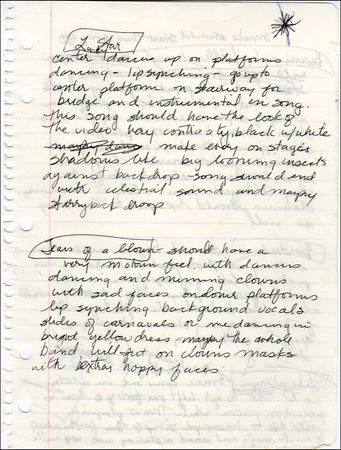 Lucky Star
center 1 dancer up on platforms
dancing - lip synching - go up to
center platform on stairway for
bridge and instrumental in song.
This song should have the look of
the video very contrasty, black w/white
make everyone on stages
shadows like big looming insects
against backdrop - song should end
with celestial sound and maybe
starry back droop
Tears of a Clown - should have a
very motown feel. with dancers
dancing and mimming clowns
with sad faces on our platforms
lip synching background vocals
slides of carnavals or me dancing in
bright yellow dress maybe the whole
band will put on clowns masks
with extra happy faces